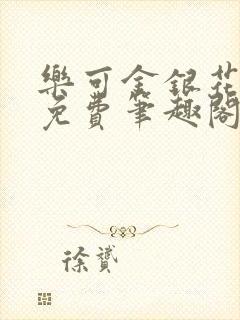 樂可金銀花
免費筆趣閣
徐贇